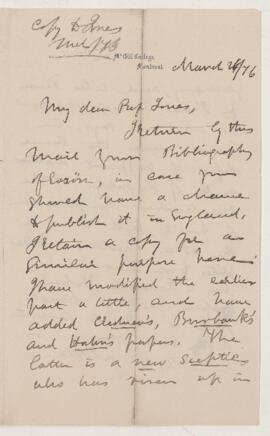 Copy to Jones
McGill College,
Montreal.
March 76
My dear Prof Jones,
I return by this
mail your Bibliography
of Eozöon, in case you
should have a chance
to publish it in England.
I retain a copy for a
similar purpose here.
I have modified the earlier
part a little, and have
added Burbank's
and Hahn's papers. The
latter is a new sceptic
who has risen up in